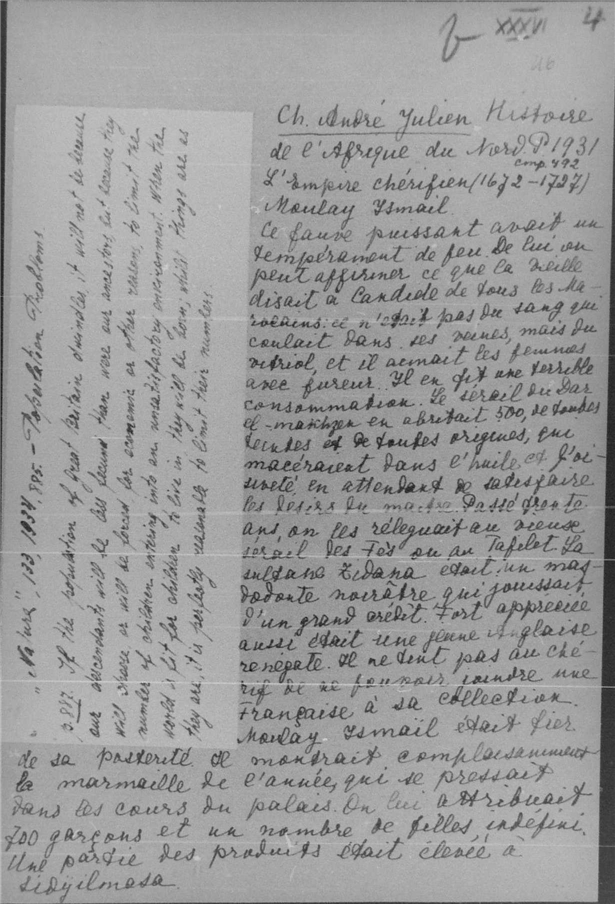 XXXVI 4
46
Ch. André Julien Histoire
de l'Afrique du Nord. P 1931
comp. 492
L'Empire chérifien (1672-1727)
Moulay Ismail.
Ce fauve puissant avait un
tempérament de feu. De lui on
peut affirmer ce que la vieille
disait à Candide de tous les Ma-
rocains: ce n'était pas du sang qui
coulait dans ses veines, mais du
vitriol, et il aimait les femmes
avec fureur. Il en fit une terrible
consommation. Le sérail du Dar
el-makhzen en abritait 500, de toutes
teintes et de toutes origines, qui
macéraient dans l'huile et l'oi-
siveté en attendant de satisfaire
les désirs du maître. Passé trente
ans, on les réléguait au vieux
sérail des Fès ou au Tafilet. La
sultane Zidana était un mas-
dodonte noirâtre qui jouissait
d'un grand crédit. Fort appreciée
aussi était une jeune Anglaise
renégate. Il ne tint pas au ché-
rif de ne pouvoir joindre une
Française à sa collection.
Moulay Ismaïl était fier
de sa posterité et montrait complaisamment
la marmaille de l'année, qui se pressait
dans les cours du palais. On lui attribuait
700 garçons et un nombre de filles indéfini.
Une partie des produits était élevée à
Sidjilmasa.
"Nature", 133, 1934, 885. - Population Problems.
p. 887. If the population of Great Britain dwindles, it will not be because
our descendants will be less fecund than were our ancestors but because they
will choose or will be forced for economic or other reasons to limit the
number of children entering into an unsatisfactory environment. When the
world is fit for children to live in they will be born; whilst things are as
they are, it is perfectly reasonable to limit their numbers.